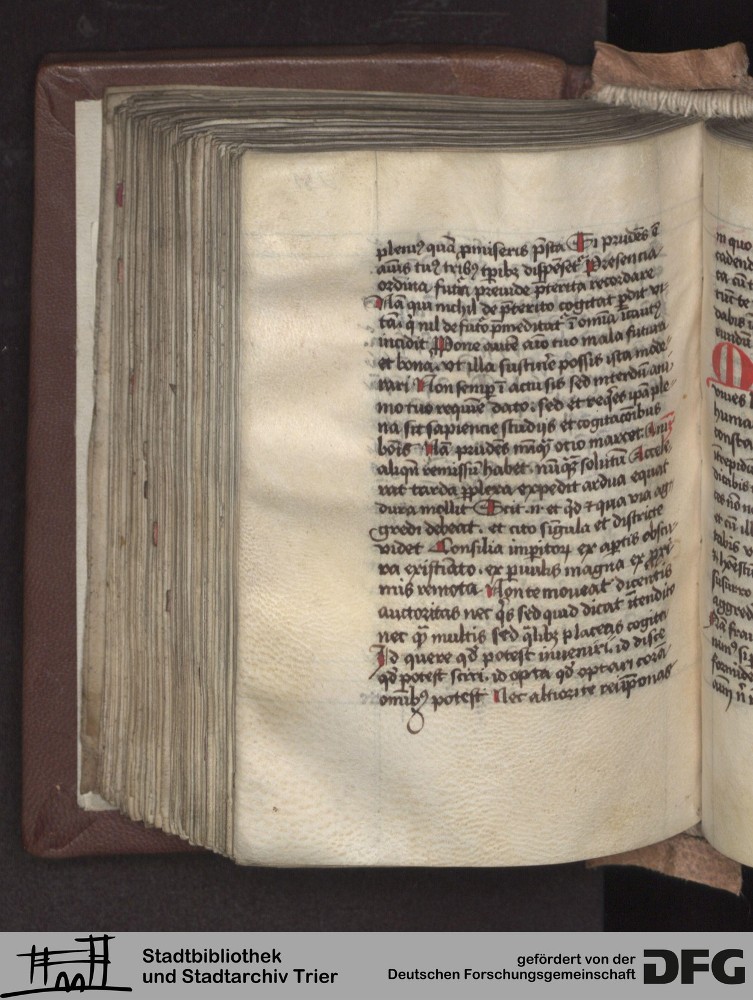 plenꝰ quā p̱miseris p̄sta Si prudēs ē
aīus tuꝰ tribꝰ tp̄ibꝫ dispēset᷑ Presencia
ordina futa᷑ p̄reuide p̄terita recordare
Nā qui nichil de p̄terito cogitat p̱dit vi
tā. q̇ nil de futo᷑ p̄meditat᷑ ī omīa īcautꝰ
incidit Propone autē aīo tuo mala futura
et bona. vt illa sustinere possis ista mode
rari Non semp̱ ī actu sis sed interdū ani
mo tuo requiē dato. sed et reqͥes ipā ple
na sit sapiencie studijs et cogitacōibus
bonis Nā prudēs nūqͣꝫ otio marcet Aīuꝫ
aliqn̄ remissū habet nūqͣꝫ solutū Accele
rat tarda p̱plexa expedit ardua equat
dura mollit Scit .n. et qͥd ⁊ qua via ag
gredi debeat. et cito singula et districte
videt Consilia imp̱itoꝝ ex ap̱tis obscu
ra existīato. ex p̱uulis magna ex p̱xi
mis remota Non te moueat dicentis
auctoritas nec qͥs sed quid dicat ītendito
nec qͫ multis sed qͣlibꝫ placeas cogita
Id quere qd̄ potest inueniri. id disce
qd̄ potest sciri. id opta qd̄ optari corā
omībꝰ potest Nec altiori te rei īponas

m quo
cadend
ta cū t
tūc te
dabis
eundū
viues
huma
consta
dicabis
et cū ill
rabis
susurro
aggred
Nā frau
nimꝰ si
formide

Stadtbibliothek
und Stadtarchiv Trier
gefördert von der
Deutschen Forschungsgemeinschaft
DFG